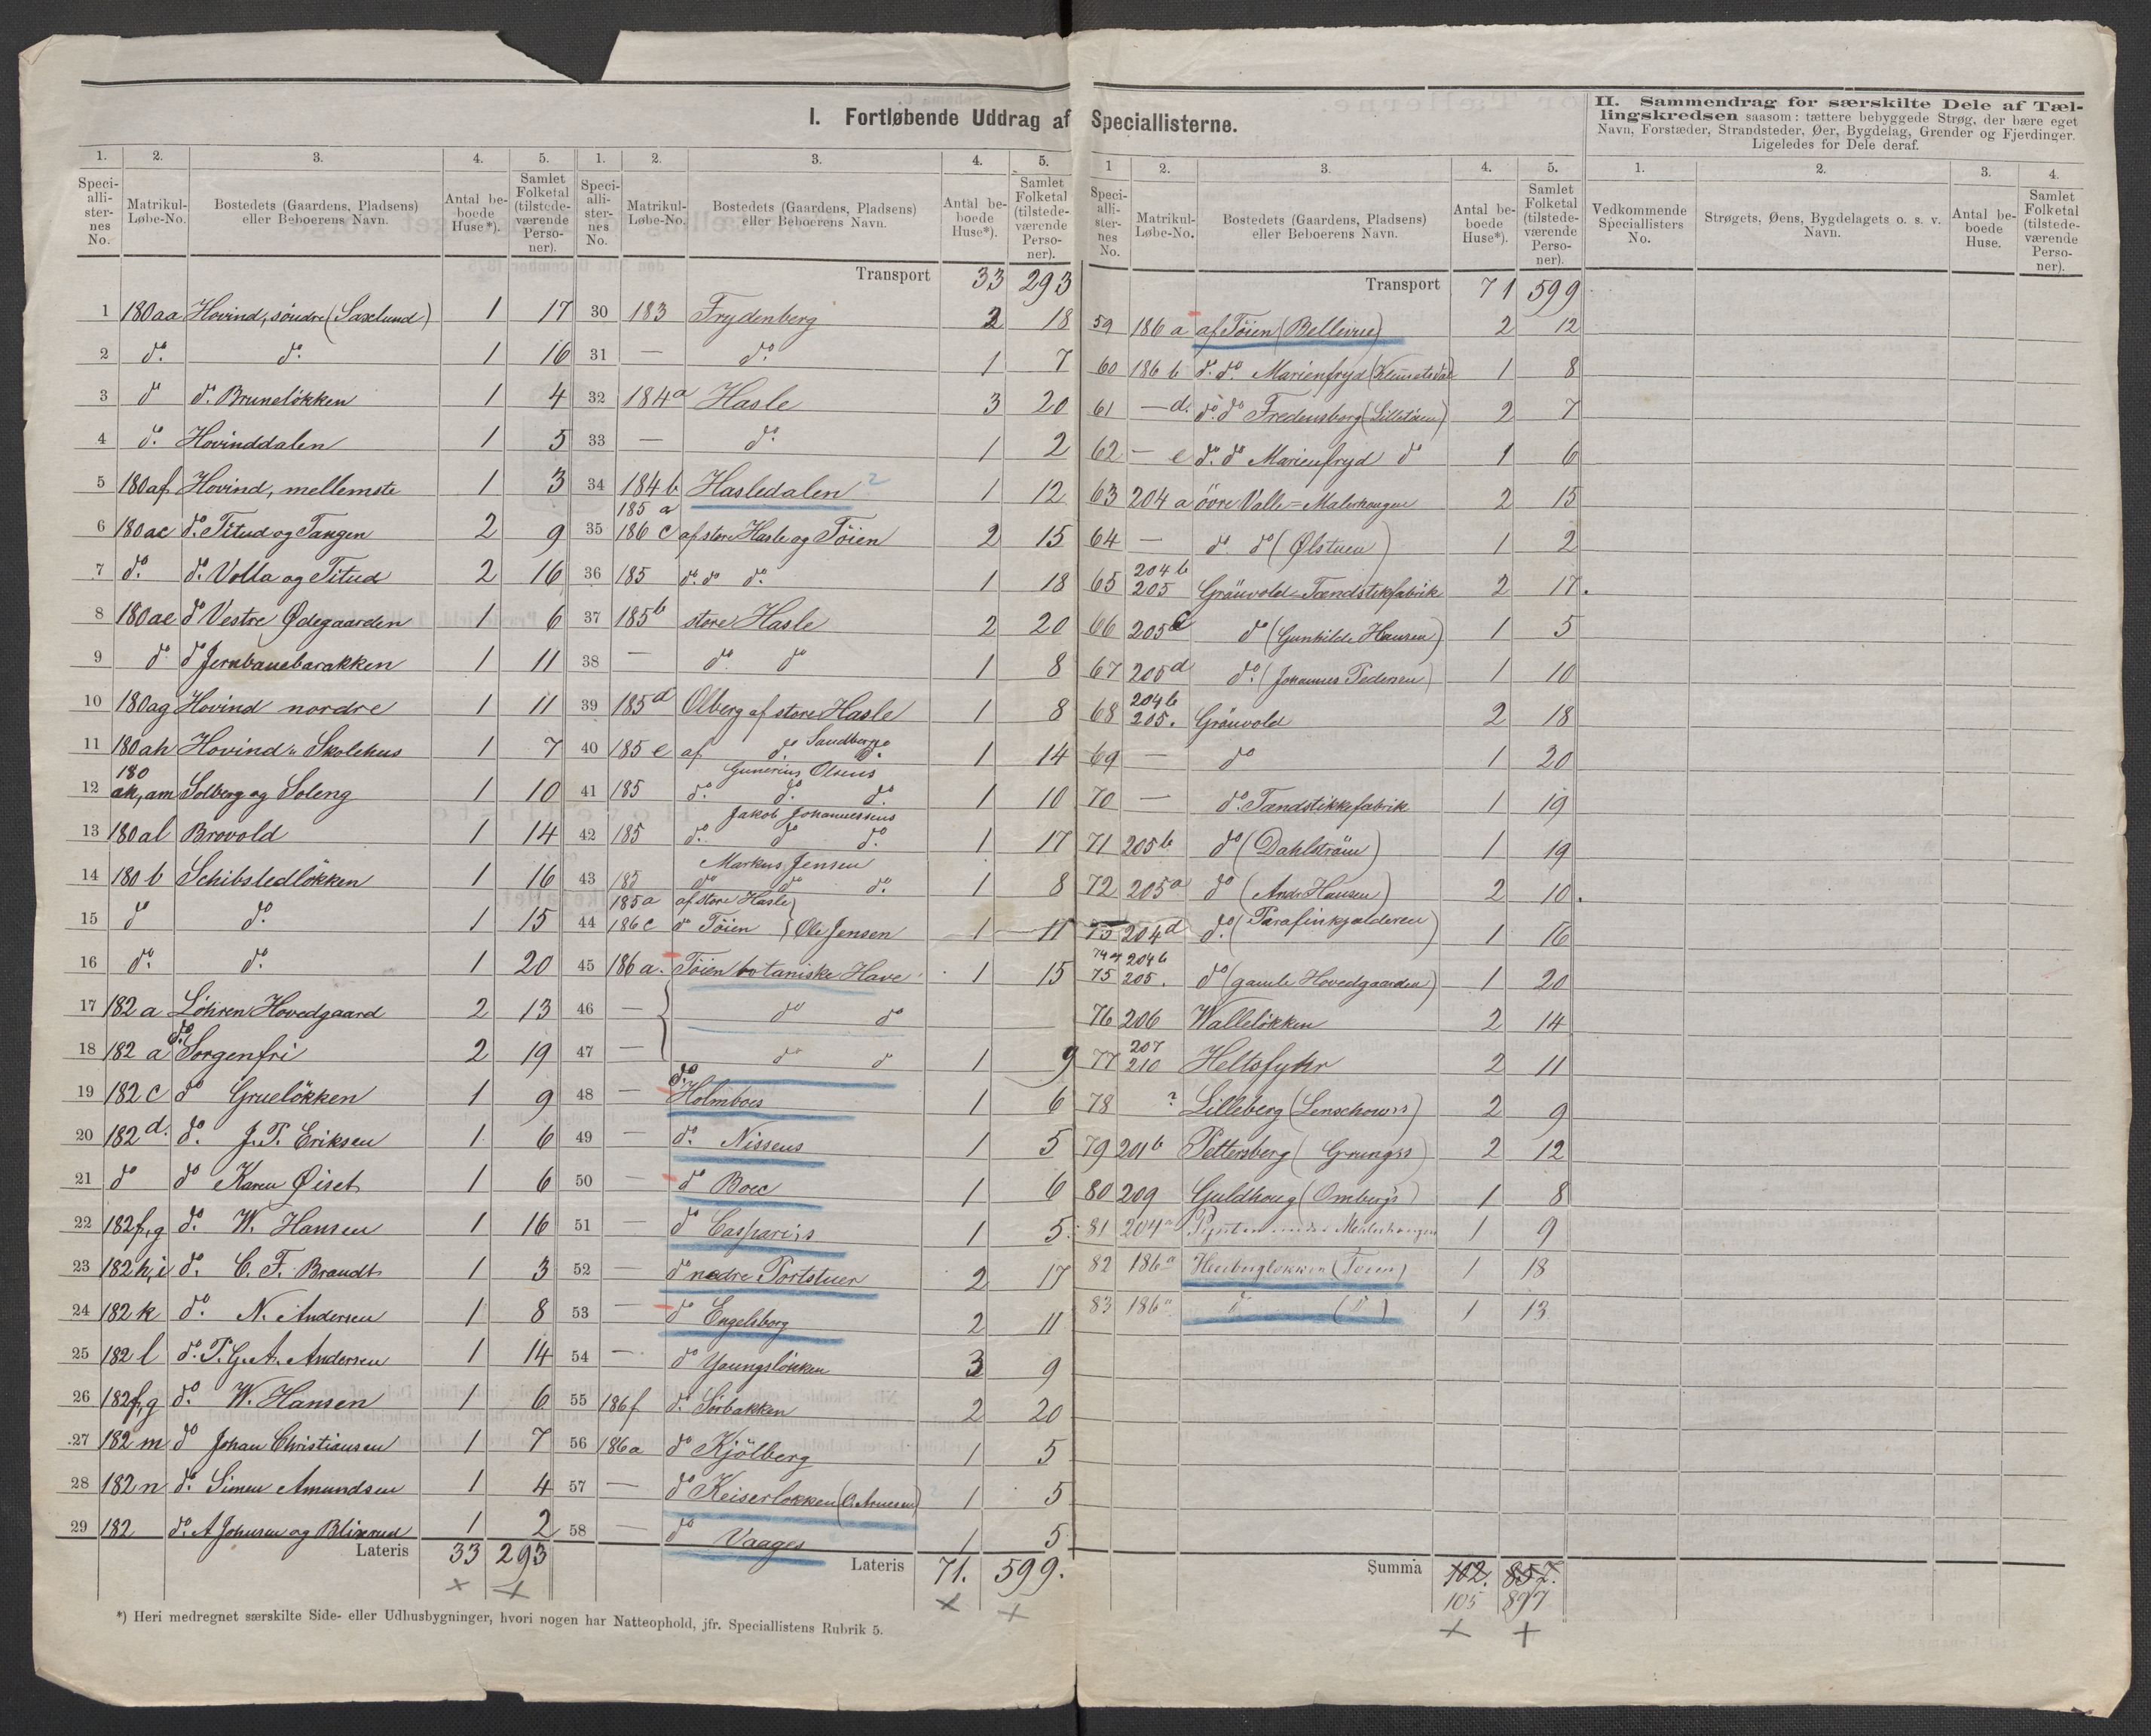 I. Fortløbende Uddrag af Speciallisterne.
1. 2. 3. 4. 5.
Speciallisternes No. Matrikul-Løbe-No. Bostedets (Gaardens, Pladsens) eller Beboerens Navn. Antal beboede Huse*). Samlet Folketal (tilstedeværende Personer).
1 180aa Hovind, söndre (Saxelund) 1 17
2 do. do. 1 16
3 do do. Bruneløkken 1 4
4 do. Hovinddalen 1 5
5 180af Hovind, mellemste 1 3
6 180ac do. Titud og Tangen 2 9
7 do. do. Volla og Titud 2 16
8 180ae do Vestre Ødegaarden 1 6
9 do do Jernbanebarakken 1 11
10 180ag Hovind nordre 1 11
11 180ah Hovind's Skolehus 1 7
12 180 ak, am Solberg og Soleng 1 10
13 180al Brovold 1 14
14 180 b Schibstedløkken 1 16
15 do do. 1 15
16 do. do. 1 20
17 182 a Löhren Hovedgaard 2 13
18 182 a do. Sorgenfri 2 19
19 182 c do Grueløkken 1 9
20 182 d. do. J. P. Eriksen 1 6
21 do do Karen Øiset 1 6
22 182f,g do. W. Hansen 1 16
23 182h,i do. C. F. Brandt 1 3
24 182 k do. N. Andersen 1 8
25 182 l do. P. G. A. Andersen 1 14
26 182f,g do. W. Hansen 1 6
27 182 m do Johan Christiansen 1 7
28 182 n do. Simen Amundsen 1 4
29 182 do. A Johnsen og Blixrud 1 2
Lateris 33 293
*) Heri medregnet særskilte Side- eller Udhusbygninger, hvori nogen har Natteophold, jfr. Speciallistens Rubrik 5.
1. 2. 3. 4. 5.
Speciallisternes No. Matrikul-Løbe-No. Bostedets (Gaardens, Pladsens) eller Beboerens Navn. Antal beboede Huse*). Samlet Folketal (tilstedeværende Personer).
Transport 33 293
30 183 Frydenberg 2 18
31 — do. 1 7
32 184a Hasle 3 20
33 — do. 1 2
34 184b Hasledalen ? 1 12
35 185 a 186 c af store Hasle og Töien 2 15
36 185 do. do do. 1 18
37 185b store Hasle 2 20
38 — do. do 1 8
39 185d Olberg af store Hasle 1 8
40 185 e af do. Sandberg do. 1 14
41 185 do. Gunerius Olsens do. do. 1 10
42 185 do. Jakob Johannessens do do. 1 17
43 185 do Markus Jensen do do. 1 8
44 185a 186 c af store Hasle do Töien } Ole Jensen 1 11
45 186 a. Töien botaniske Have 1 15
46 — do do
47 — do do 1 9
48 — do. Holmboes 1 6
49 — do. Nissens 1 5
50 — do Boec 1 6
51 — do Caspari's 1 5
52 — do nedre Portstuer 2 17
53 — do Engelsborg 2 11
54 — do Youngsløkken 3 9
55 186f do. Sörbakken 2 20
56 186a do Kjölberg 1 5
57 — do Keiserløkken (C. Arnesen) 1 5
58 — do Vaages 1 5
Lateris 71. 599.
1 2. 3. 4. 5.
Speciallisternes No. Matrikul-Løbe-No. Bostedets (Gaardens, Pladsens) eller Beboerens Navn. Antal beboede Huse*). Samlet Folketal (tilstedeværende Personer).
Transport 71 599
59 186 a af Töien (Bellevue) 2 12
60 186 b do. do. Marienfryd (Klemetsdal 1 8
61 — d. do. do Fredensborg (Lilletöien) 2 7
62 — e do. do Marienfryd do 1 6
63 204 a övre Valle = Malerhaugen 2 15
64 — do do (Ølstuen) 1 2
65 204 b 205 Grönvold Tændstikfabrik 2 17.
66 205c do (Gunhilde Hansen) 1 5
67 205d do. (Johannes Pedersen) 1 10
68 204b 205. Grönvold 2 18
69 — do 1 20
70 — do. Tændstikkefabrik 1 19
71 205b do (Dahlström) 1 19
72 205a do (Andr. Hansen) 2 10.
73 204d do. (Parafinkjælderen) 1 16
74 og 75 204b 205. do (gamle Hovedgaarden) 1 20
76 206 Walleløkken 2 14
77 207 210 Heltsfyhr 2 11
78 ? Lilleberg (Lenschow's) 2 9
79 201b Pettersberg (Grung's) 2 12
80 209 Guldhaug (Omberg's) 1 8
81 204a under Malerhaugen 1 9
82 186a Heibergløkken (Töien) 1 18
83 186a do (do) 1 13
Summa 102. 857.
105 897
II. Sammendrag for særskilte Dele af Tællingskredsen saasom: tættere bebyggede Strøg, der bære eget Navn, Forstæder, Strandsteder, Øer, Bygdelag, Grender og Fjerdinger. Ligeledes for Dele deraf.
1. 2. 3. 4.
Vedkommende Speciallisters No. Strøgets, Øens, Bygdelagets o. s. v. Navn. Antal beboede Huse. Samlet Folketal (tilstedeværende Personer).